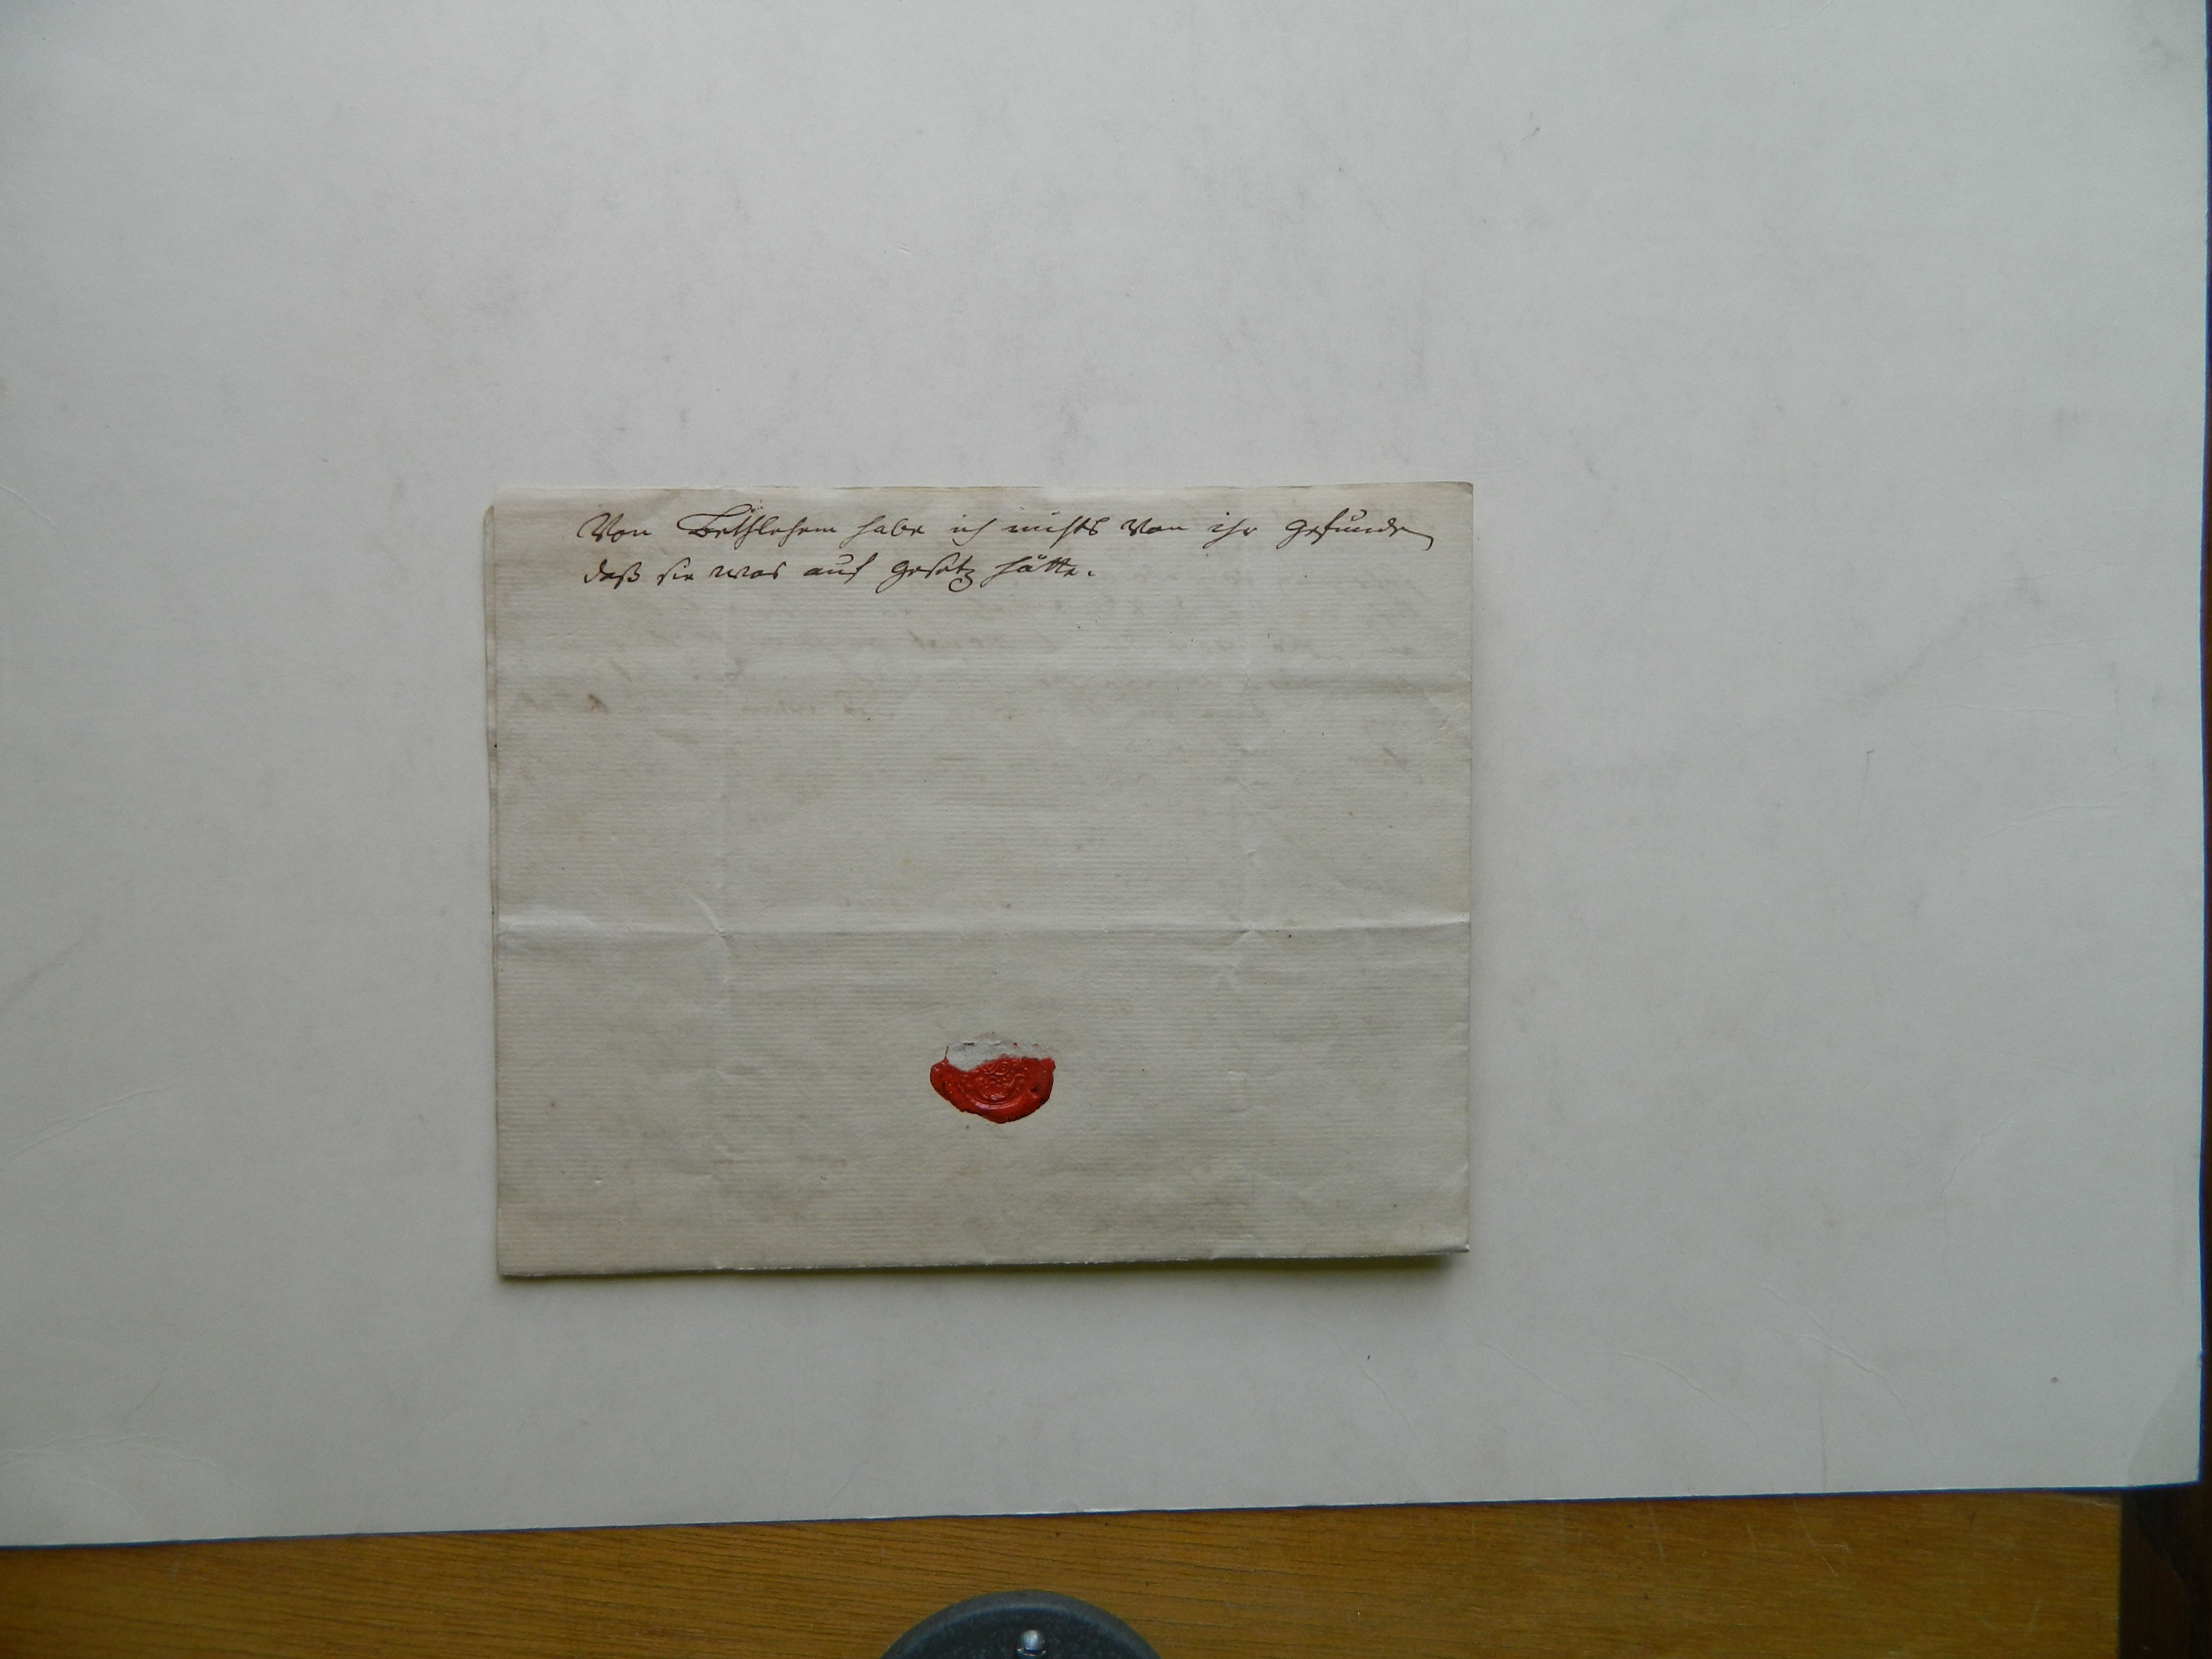 Von Bethlehem habe ich nichts Von ihr gefunden
daß sie was auf gesetz hätte.